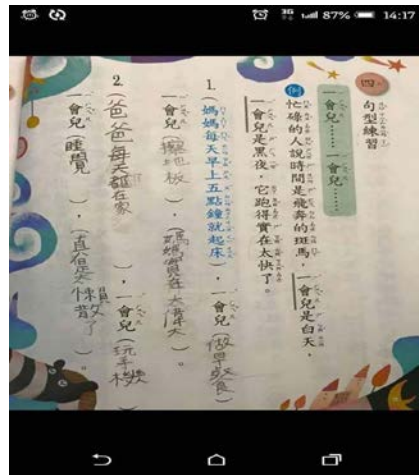 3G 87% 14:17
四、句型練習
一會兒……一會兒……
例 忙碌的人說時間是飛奔的斑馬，一會兒是白天，
一會兒是黑夜，它跑得實在太快了。
1.(媽媽每天早上五點鐘就起床)，一會兒(做早餐)
一會兒(擦地板)，(媽媽實在太偉大)。
2.(爸爸每天都在家)，一會兒(玩手機)
一會兒(睡覺)，(真有夠)。